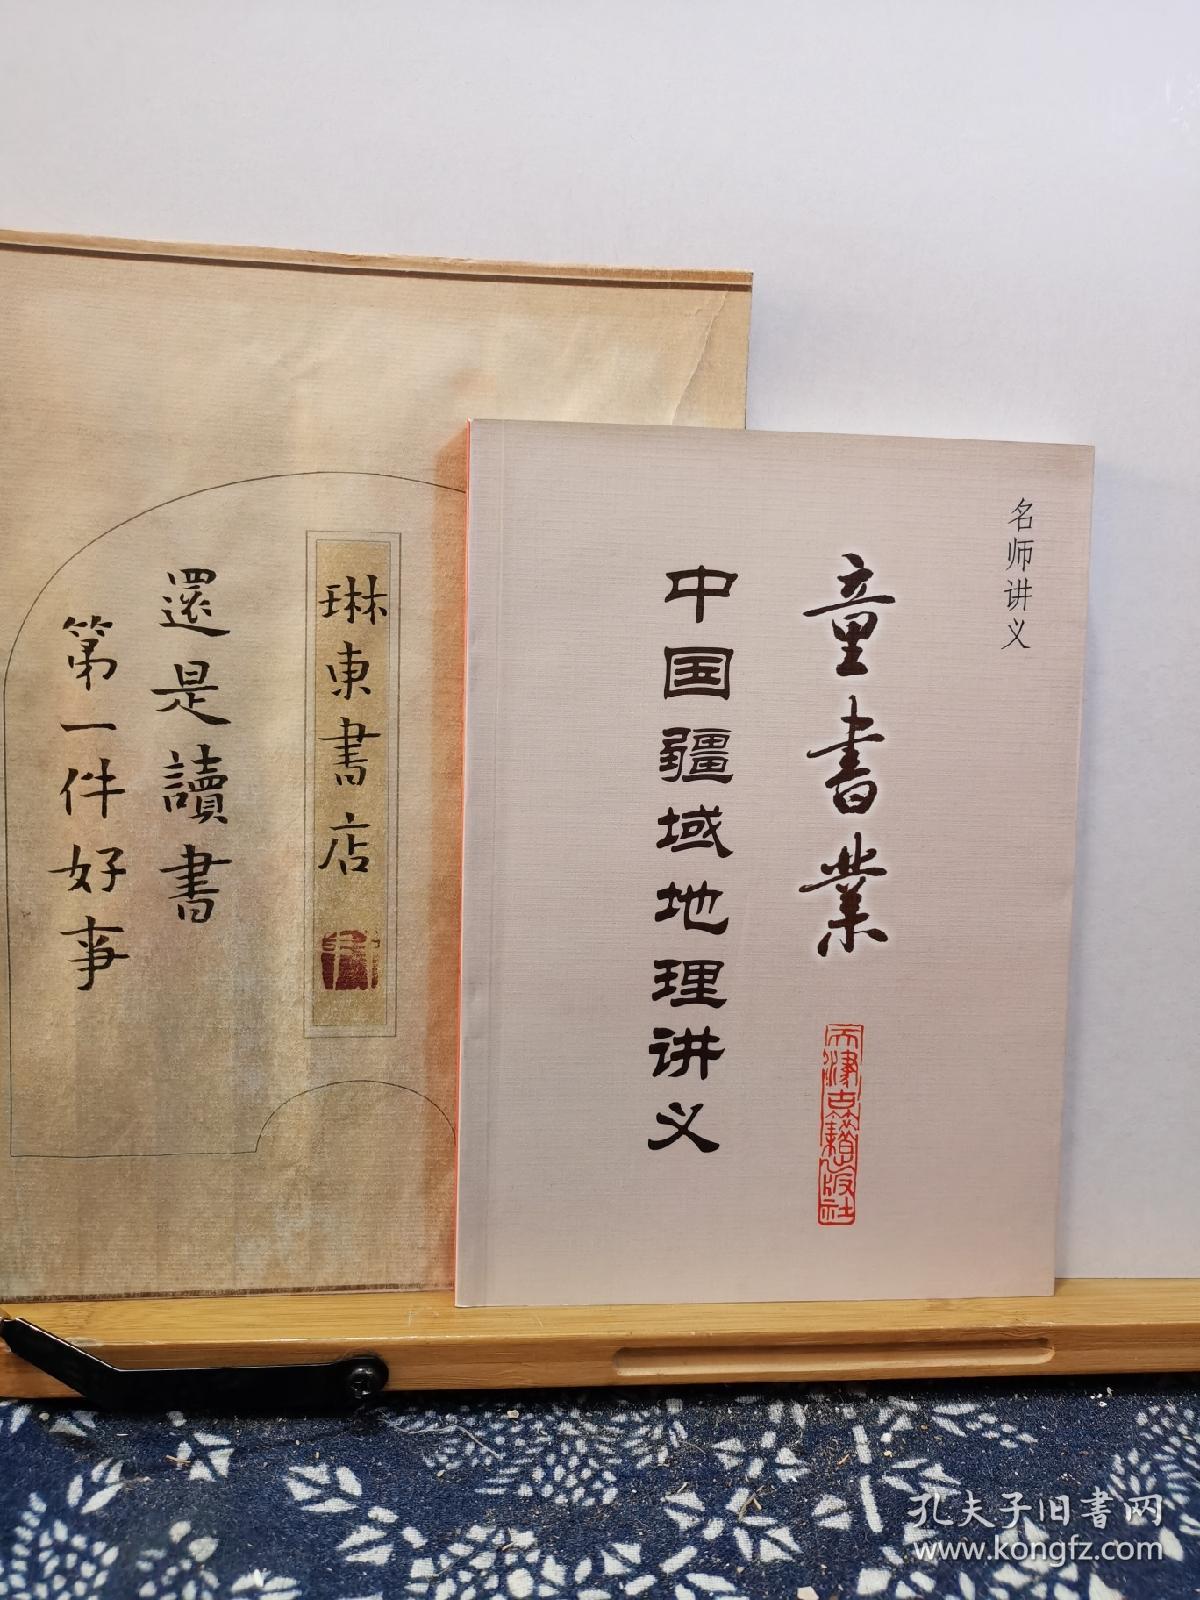 名师讲义
童書業
中国疆域地理讲义
天津古籍出版社
琳東書店
還是讀書
第一件好事
孔夫子旧書网
www.kongfz.com